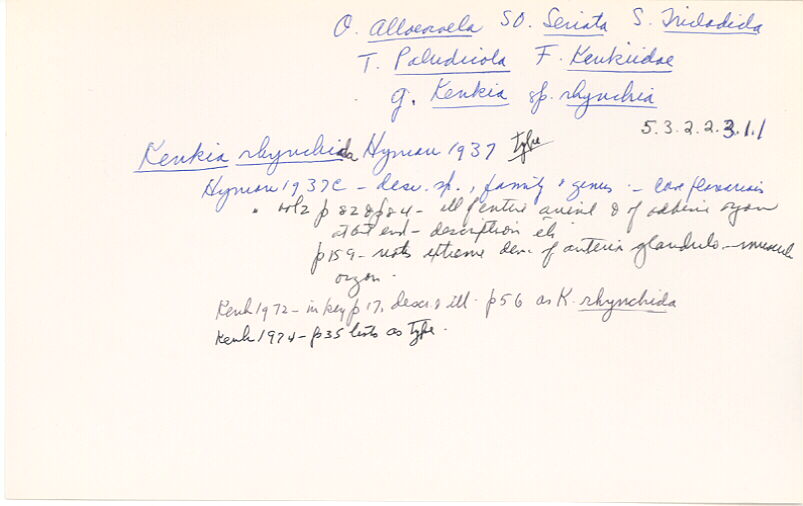 O. Alloeocoela SO. Seriata S. Tricladida
T. Paludicola F. Kenkiidae
g. Kenkia sp. rhynchia
5.3.2.2.3.1.1
Kenkia rhynchida Hyman 1937 type
Hyman 1937c - desc. sp., family & genus - cave planarians
" vol 2 p 82 & p 84 - ill of entire animal & of adhesive organ
at ant end - description etc
p 159 - notes extreme dev. of anterior glandulo-muscular
organ.
Kenk 1972 - in key p 17, descr & ill. p 56 as K. rhynchida
Kenk 1974 - p 35 lists as type.